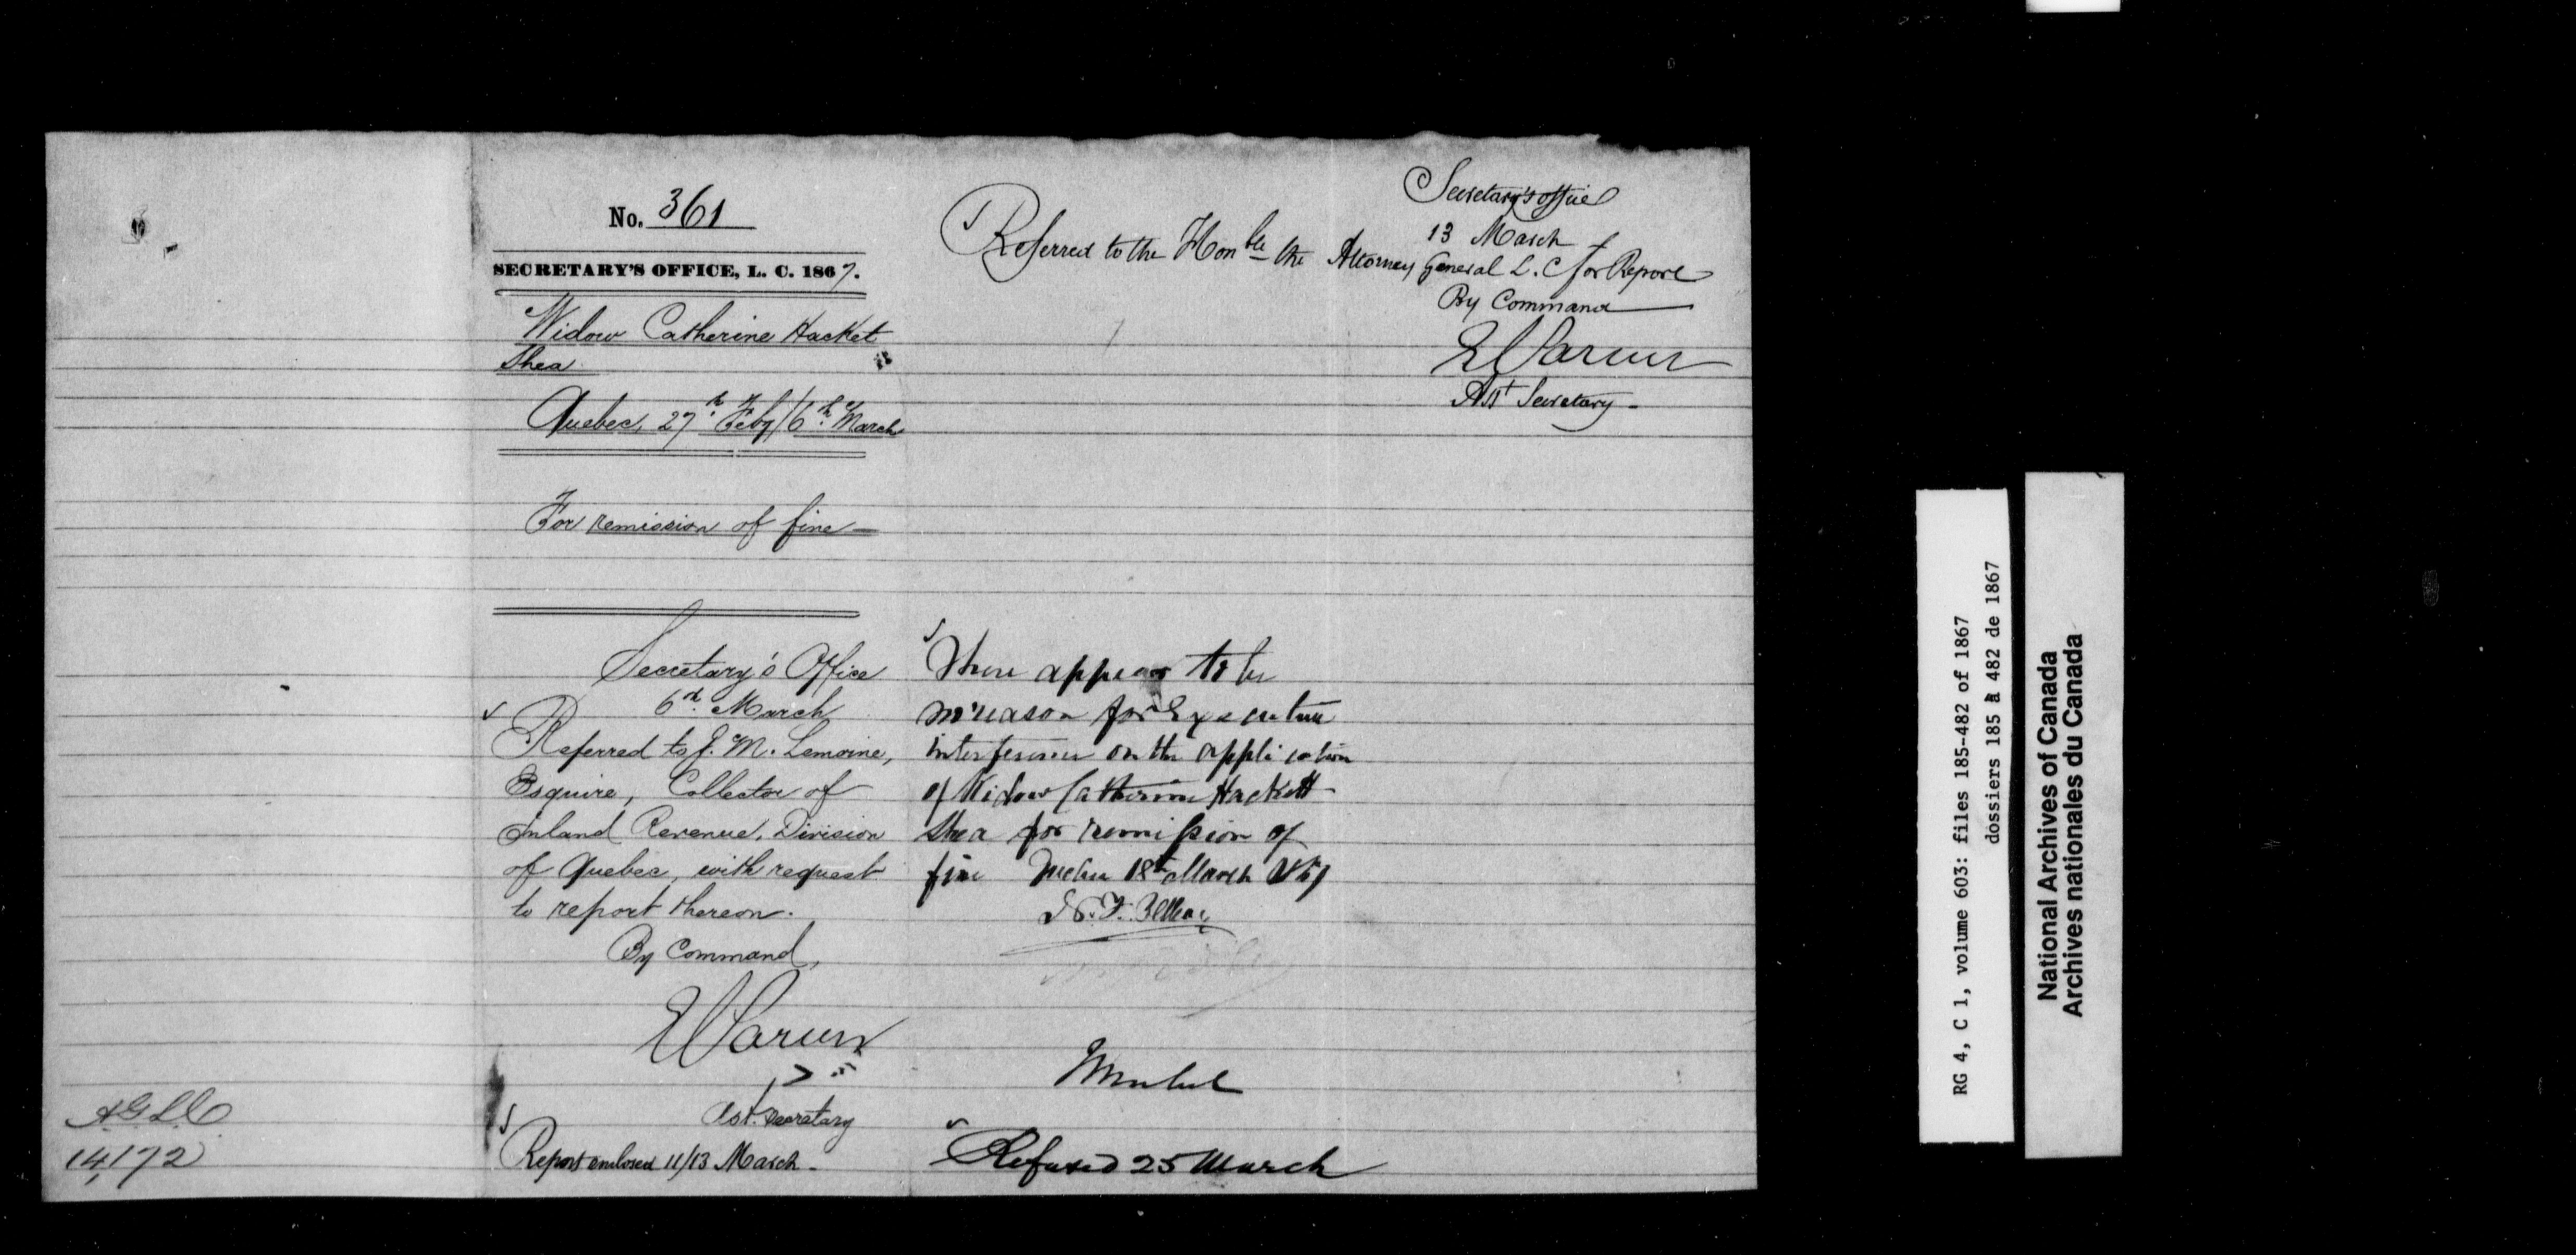 No. 361
SECRETARY'S OFFICE, L. C. 1867.
Widow Catherine Hacket
Shea
Quebec, 27th Feby/6th March
For remission of fine
Secretary's Office
6th March
Referred to J. M. Lemoine,
Esquire, Collector of
Inland Revenue, Division
of Quebec, with request
to report thereon.
By Command,
Asst. Secretary
Report enclosed 11/13 March.
A.G.L.C
14,172
Secretary's office
13 March
Referred to the Honble the Attorney General L. C for Report
By Command
Asst Secretary
There appears to be
no reason for Executive
interference on the application
of Widow Catherine Hackett
Shea for remission of
fine Quebec 18th March 1867
Refused 25 March
RG 4, C 1, volume 603: files 185-482 of 1867
dossiers 185 à 482 de 1867
National Archives of Canada
Archives nationales du Canada